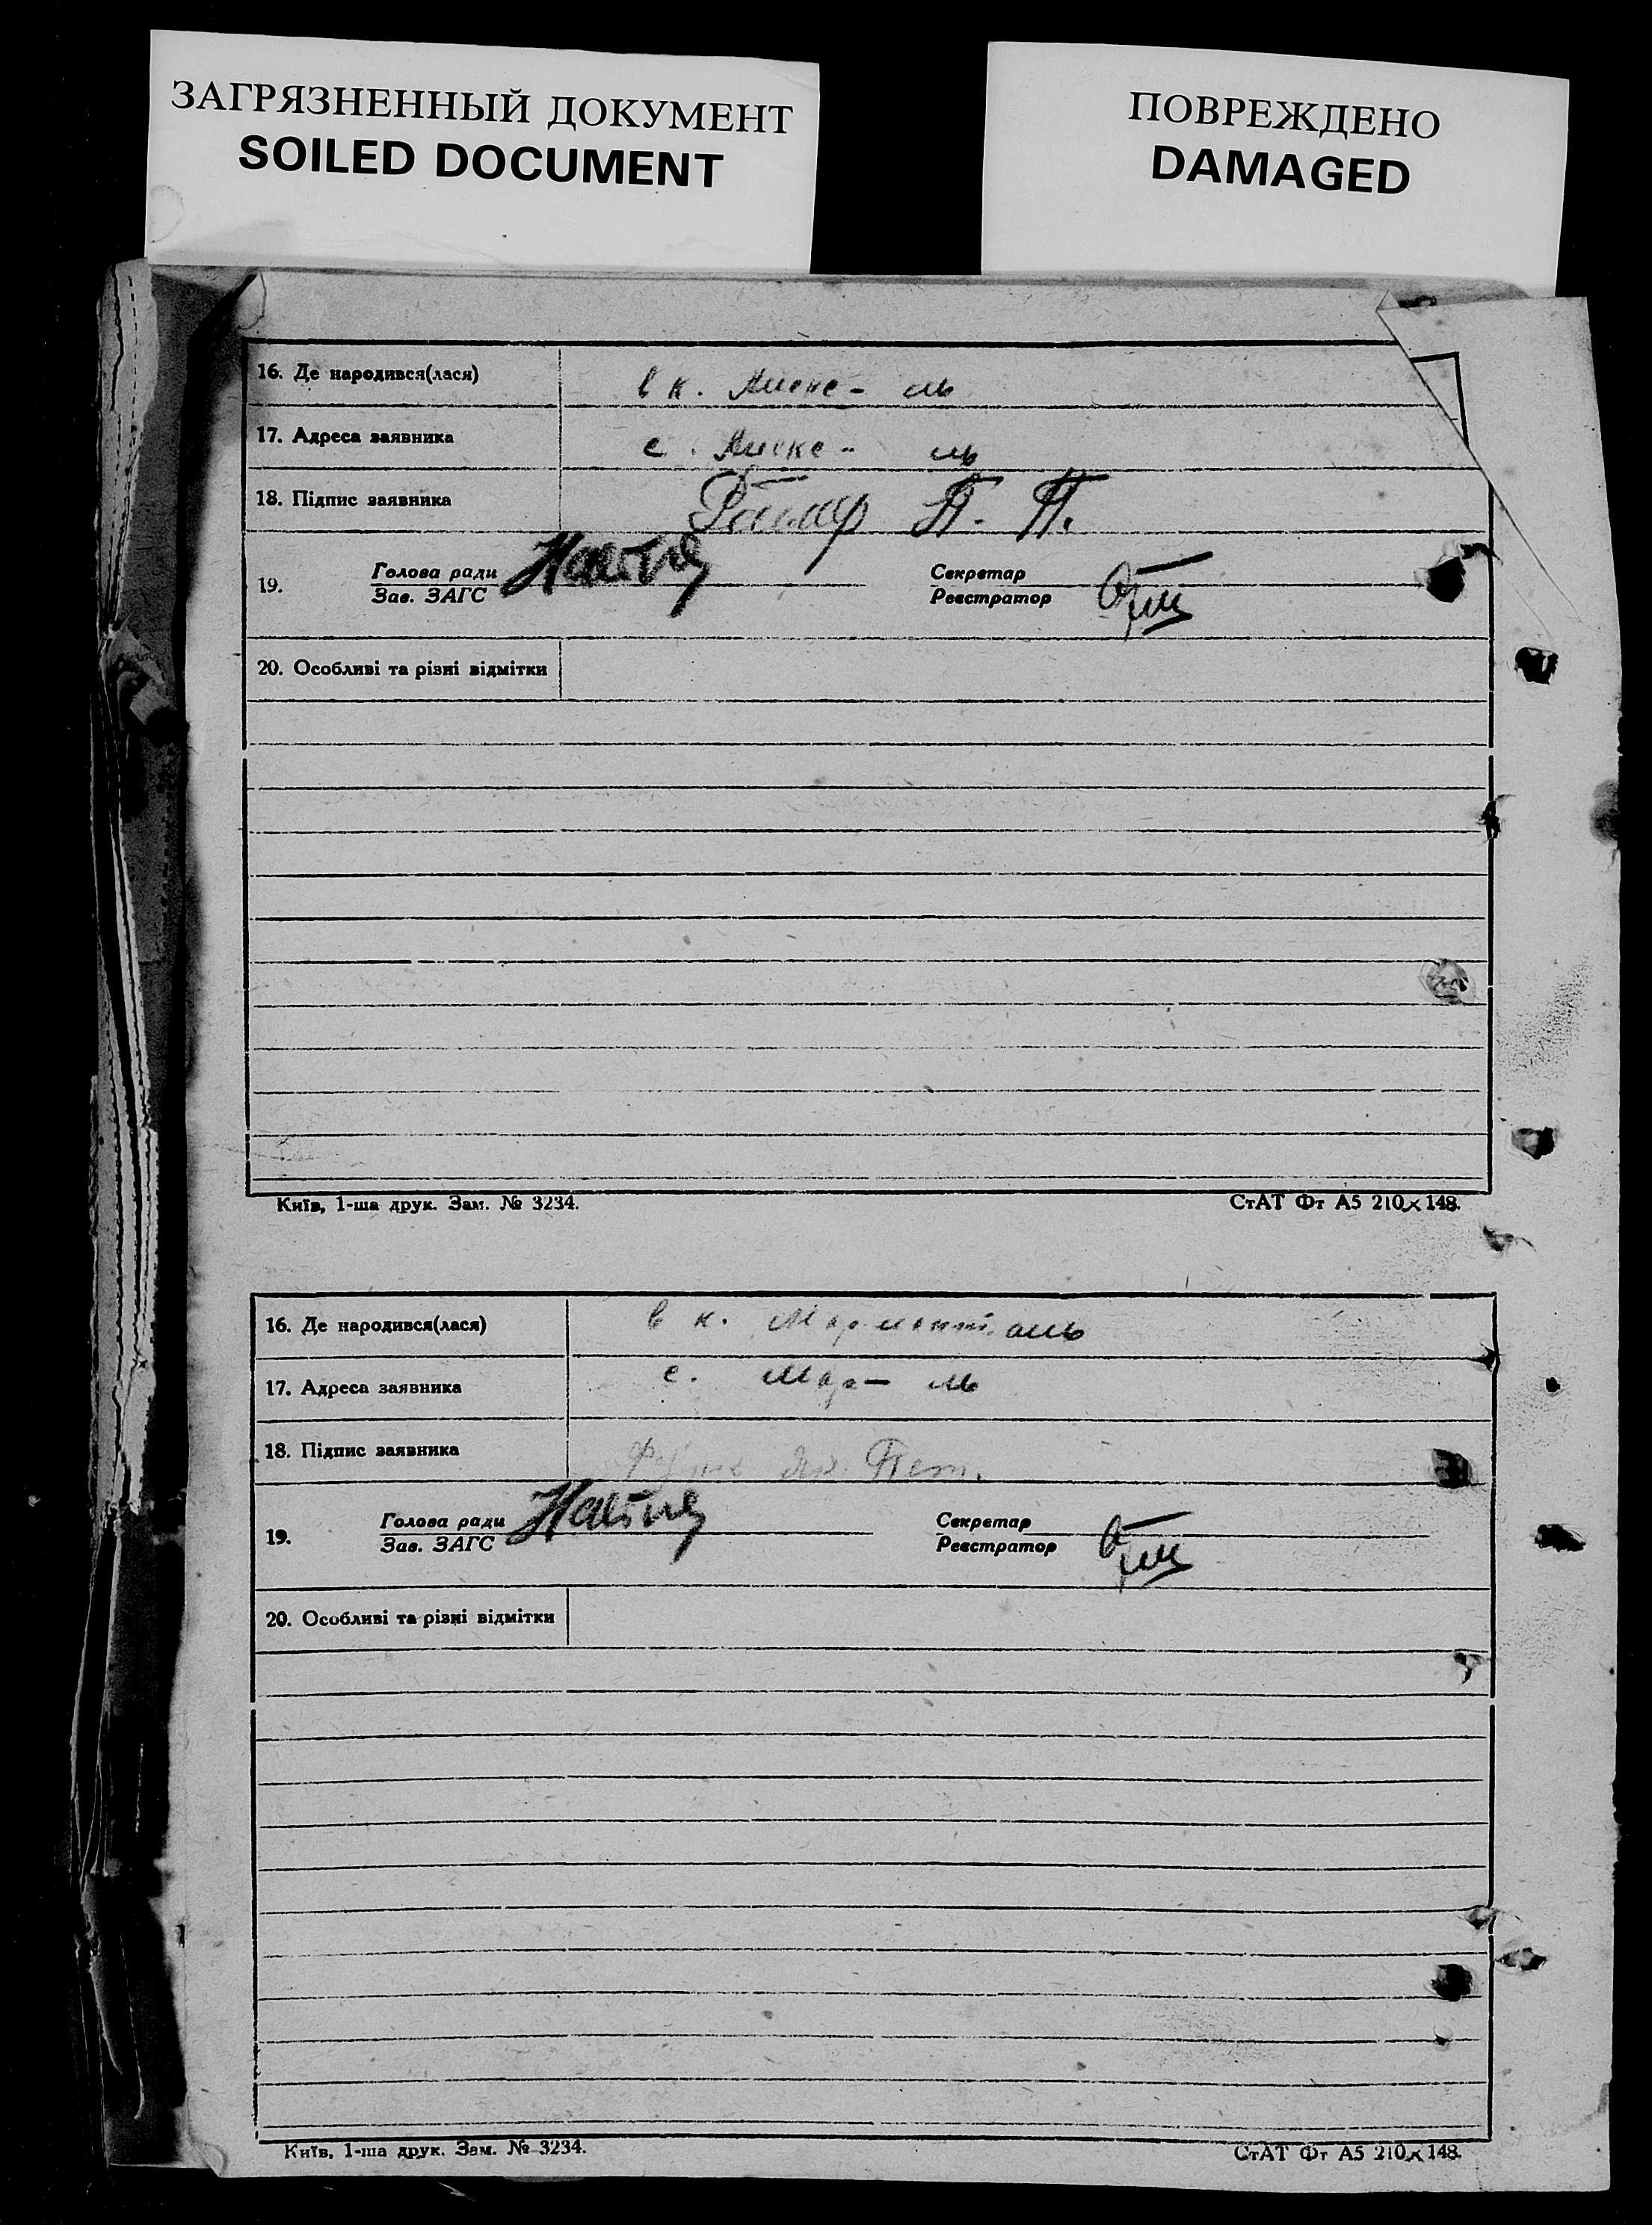 ЗАГРЯЗНЕННЫЙ ДОКУМЕНТ
SOILED DOCUMENT
ПОВРЕЖДЕНО
DAMAGED
16. Де народився(лася) в к.
17. Адреса заявника с.
18. Підпис заявника П. П.
19. Голова ради Секретар
Зав. ЗАГС Реєстратор
20. Особливі та різні відмітки
Київ, 1-ша друк. Зам. № 3234. СтАТ Фт А5 210×148.
16. Де народився(лася) в к.
17. Адреса заявника с. Мар- ль
18. Підпис заявника
19. Голова ради Секретар
Зав. ЗАГС Реєстратор
20. Особливі та різні відмітки
Київ, 1-ша друк. Зам. № 3234. СтАТ Фт А5 210×148.